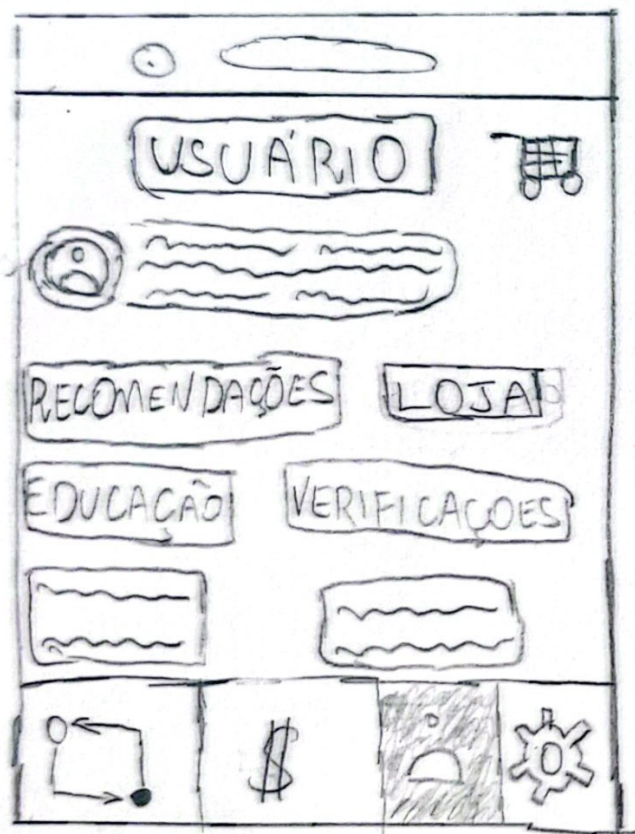 USUÁRIO
RECOMENDAÇÕES LOJA
EDUCAÇÃO VERIFICAÇOES
$